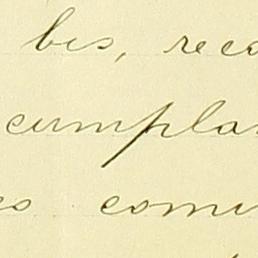 bes, reco
cumpla
es comu